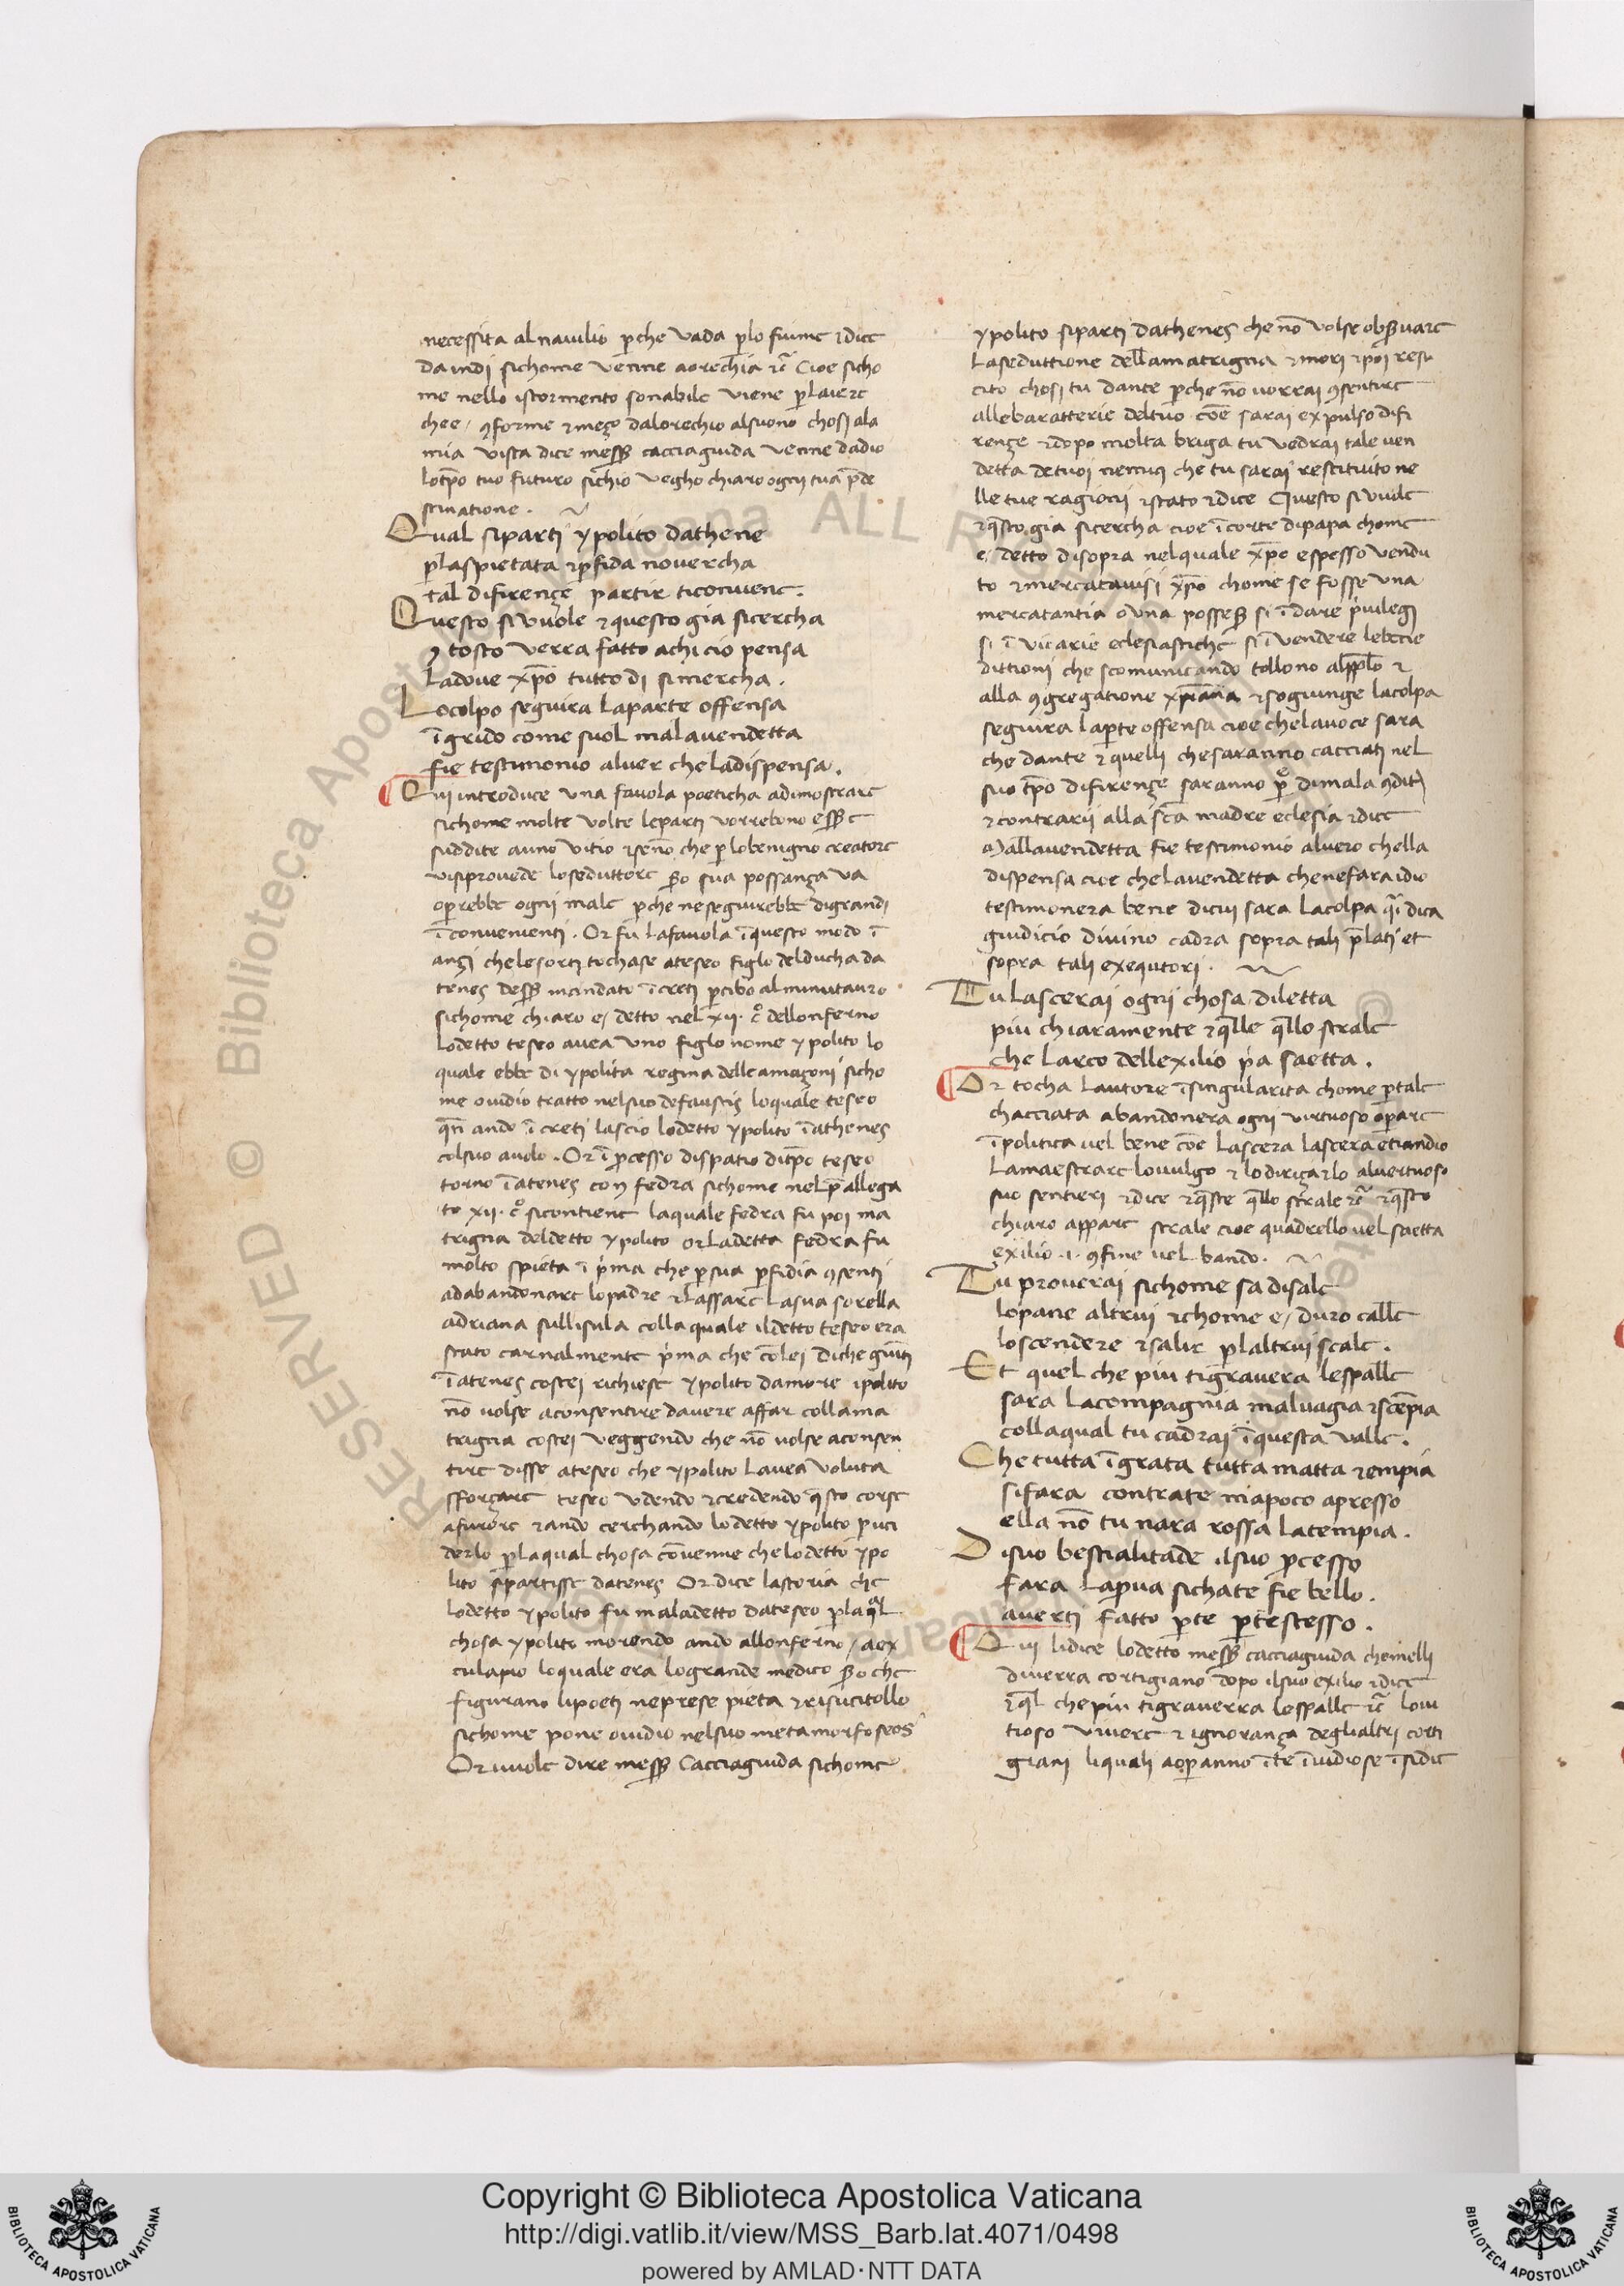 necessita al navilio ꝑche vada ꝑlo fiume ⁊dice
da indi sichome venne aorechia ⁊c̃ Cioe sicho
me nello istormento sonabile viene ꝑlaiere
chee / ꝯforme ⁊mezo dalorechio alsuono chosi ala
mia vista dice mess̃ cacciaguida venne dadio
lotp̃o tuo futuro sichio vegho chiaro ogni tua p̃de
stinatione .
Qual siparti ypolito dathene
ꝑlaspietata ⁊ꝑfida novercha
tal difirenze partir ticonvene .
Questo si vuole ⁊questo gia sicercha
⁊ tosto verra fatto achi cio pensa
Ladove xp̃o tutto di simercha .
Locolpo seguira laparte offensa
ĩ grido come suol malavendetta
fie testimonio alver cheladispensa .
Qui introduce una favola poeticha adimostrare
sichome molte volte leparti vorrebono ess̃e
suddite avno vitio ⁊seno che ꝑ lobenigno creatore
visiprovede loseduttore ꝑo sua possanza va
oꝑrebbe ogni male ꝑche neseguirebbe digrandi
ĩconvenienti . Or fu lafavola ĩquesto modo ĩ
anzi chelesorti tochase ateseo figlo delducha da
tenes dess̃ mandato ĩcreti ꝑcibo alminutauro
sichome chiaro e/ detto nel xii . cº dellonferno
Lodetto teseo avea uno figlo nome ypolito lo
quale ebbe di ypolita regina delleamazoni sicho
me ovidio tratto nelsuo defaustis loquale teseo
qñ ando ĩ creti lascio lodetto ypolito ĩathenes
colsuo avolo . Or ĩ ꝓcesso dispatio ditp̃o teseo
torno ĩatenes con fedra sichome nelp̃allega
to xii . cº sicontiene laquale fedra fu poi ma
trigna deldetto ypolito orladetta fedra fu
molto spieta ĩ p̃ma che ꝑsua ꝑfidia ꝯsenti
adabandonare lopadre ⁊lassare lasua sorella
adriana sullisula collaquale ildetto teseo era
stato carnalmente p̃ma che cõlei diche
ĩatenes costei richiese ypolito damore ipolito
nõ volse aconsentire davere affar collama
trigna costei veggendo che nõ volse aconsen
tire disse ateseo che ypolito lavea voluta
sforzare teseo udendo ⁊credendo q̃sto corse
afurore ⁊ando cerchando lodetto ypolito ꝑuci
derlo ꝑlaqual chosa cõvenne chelodetto ypo
lito sipartisse datenes Ordice lastoria che
lodetto ypolito fu maladetto dateseo ꝑlaq̃l
chosa ypolito morendo ando allonferno / aex
culapio loquale era logrande medico ꝑo che
figurano lipoeti neprese pieta ⁊risucitollo
sichome pone ovidio nelsuo metamorfoseos
Or vuole dire mess̃ Cacciaguida sichome
ypolito siparti dathenes che nõ volse obs̃uare
Laseduttione dellamatrigna ⁊mori ⁊poi resu
cito chosi tu dante ꝑche nõ vorrai ꝯsentire
allebaratterie deltuo cõe sarai expulso difi
renze ⁊dopo molta briga tu vedrai tale ven
detta detuoi nemici che tu sarai restituito ne
lle tue ragioni ⁊stato ⁊dice Questo si vuole
⁊q̃sto gia sicercha cioe ĩcorte dipapa chome
e/ detto disopra nelquale xp̃o espesso vendu
to ⁊mercatavisi xp̃o chome se fosse una
mercatantia o una possess̃ si ĩ dare p̃vilegi
si ĩ vicarie eclesiastiche si ĩ vendere lebene
dittioni che scomunicando tollono alpp̃lo ⁊
alla ꝯgregatione xp̃iana ⁊sogiunge lacolpa
seguira laꝑte offensa cioe chelavoce sara
che dante ⁊quelli chesaranno cacciati nel
suo tp̃o difirenze saranno di mala ꝯdit
⁊contrarii alla sc̃a madre eclesia ⁊dice
Mallavendetta fie testimonio alvero chella
dispensa cioe chelavendetta chenefara idio
testimonera bene dicui sara lacolpa q̃i dica
giudicio divino cadra sopra tali p̃lati et
sopra tali exequtori .
Tu lascerai ogni chosa diletta
piu chiaramente ⁊q̃lle q̃llo strale
che larco dellexilio p̃a saetta .
Or tocha lautore ĩsingularita chome ꝑtale
chacciata abandonera ogni virtuoso oꝑare
ĩpolitica vel bene cõe lascera lascera etiandio
Lamaestrare lovulgo ⁊ lodirizarlo alvertuoso
suo sentieri ⁊dice ⁊q̃ste q̃llo strale ⁊c̃ ⁊q̃sto
chiaro appare strale cioe quadrello vel saetta
exilio .i. ꝯfine vel bando .
Tu proverai sichome sa disale
lopane altrui ⁊chome e/ duro calle
loscendere ⁊salir ꝑlaltrui scale .
Et quel che piu tigravera lespalle
sara lacompagnia malvagia ⁊scẽpia
collaqual tu cadrai ĩquesta valle .
Che tutta ĩgrata tutta matta ⁊empia
sifara contrate mapoco apresso
ella nõ tu nara rossa latempia .
Disuo bestialitade ilsuo ꝓcesso
fara lapruva sichate fie bello .
averti fatto ꝑte ꝑtestesso .
Qui lidice lodetto mess̃ cacciaguida cheinelli
diverra cortigiano dopo ilsuo exilio ⁊dice
⁊q̃l chepiu tigraverra lespalle ⁊c̃ lovi
tioso vivere ⁊ ignoranza deglialtri corti
giani liquali aoꝑanno ĩte ĩvidiose ĩsidie
Copyright © Biblioteca Apostolica Vaticana
http://digi.vatlib.it/view/MSS_Barb.lat.4071/0498
powered by AMLAD·NTT DATA